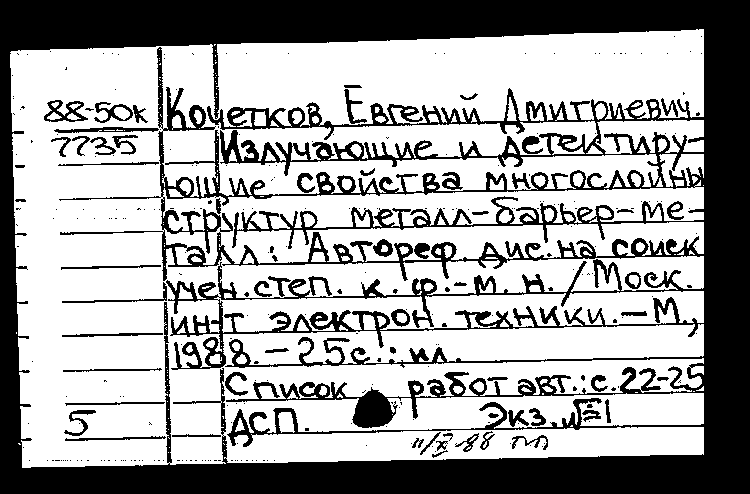 88-50к Кочетков, Евгений Дмитриевич.
7735 Излучающие и детектиру-
ющие свойства многослойны
структур металл-барьер-ме-
талл: Автореф. дис. на соиск
учен. степ. к. ф.-м. н. / Моск.
ин-т электрон. техники. — М.,
1988. — 25 с.: ил.
Список работ авт.: с. 22-25
5 ДСП. Экз. №1
88